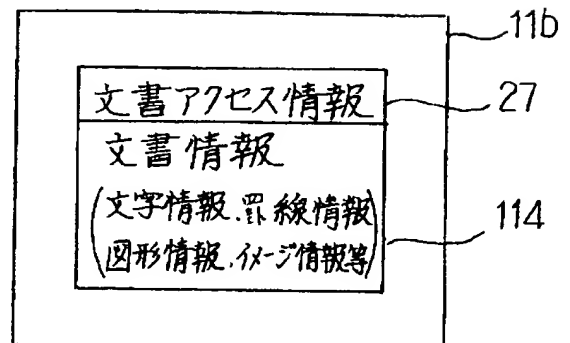 11b
文書アクセス情報 27
文書情報
(文字情報、罫線情報
図形情報、イメージ情報等) 114